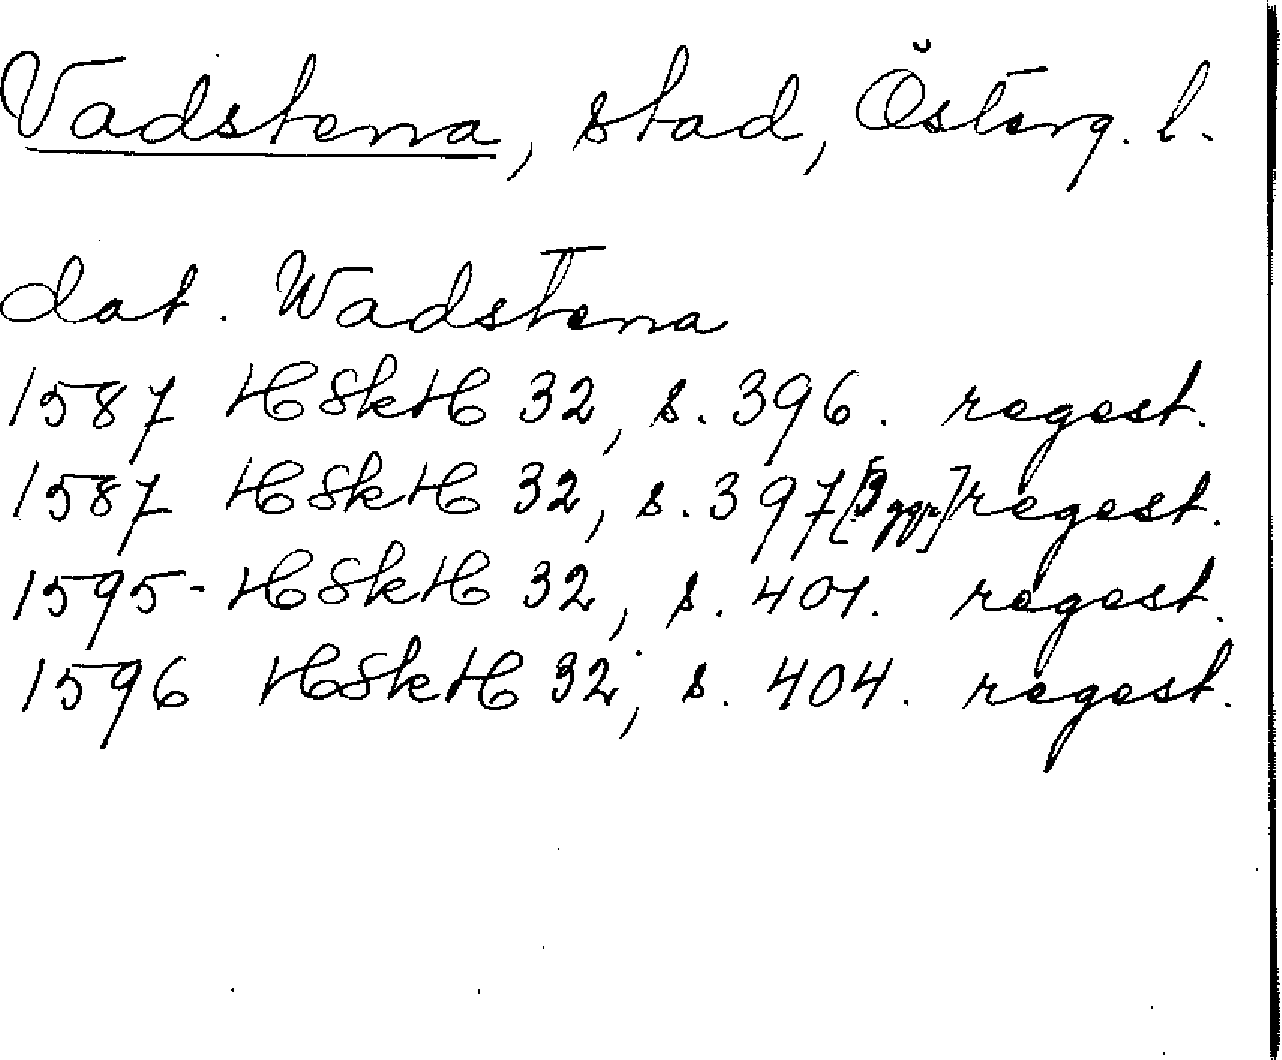 Vadstena, stad, Österg. l.
dat. Wadstena
1587 HSkH 32, s. 396. regest.
1587 HSkH 32, s. 397 [3 ggr] regest.
1595- HSkH 32, s. 401. regest.
1596 HSkH 32, s. 404. regest.